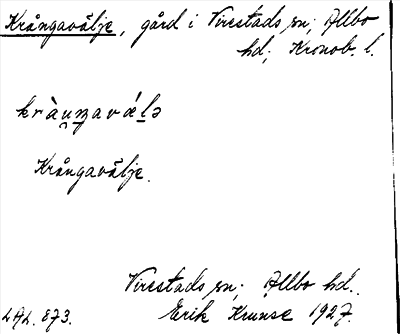 Krångavälje, gård i Virestads sn; Allbo
hd; Kronob. l.
kràu̯ŋavǽlə
Krångavälje.
Virestads sn; Allbo hd.
LAL. 873. Erik Krunse 1927